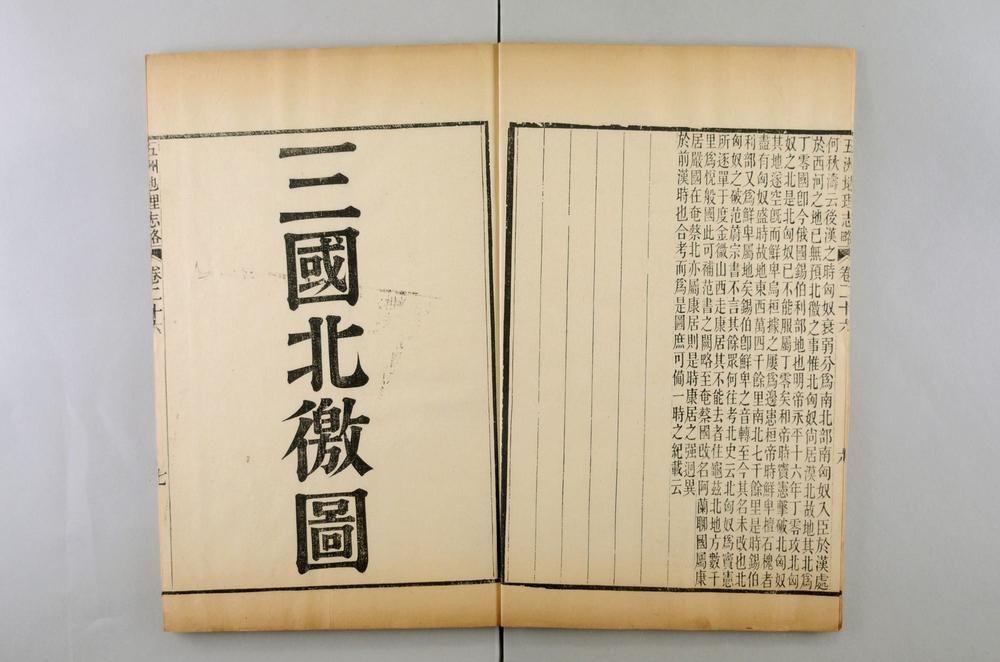 五洲地理志略 卷二十六
何秋濤云後漢之時匈奴衰弱分爲南北部南匈奴入臣於漢處
於西河之地已無預北徼之事惟北匈奴尙居漠北故地其北爲
丁零國卽今俄國錫伯利部地也明帝永平十六年丁零攻北匈
奴之北是北匈奴已不能服屬丁零矣和帝時竇憲擊破北匈奴
其地遂空旣而鮮卑烏桓據之屢爲邊患桓帝時鮮卑檀石槐者
盡有匈奴盛時故地東西萬四千餘里南北七千餘里是時錫伯
利部又爲鮮卑屬地矣錫伯卽鮮卑之音轉至今其名未改也北
匈奴之破范蔚宗書不言其餘眾何往考北史云北匈奴爲竇憲
所逐單于度金微山西走康居其不能去者住龜茲北地方數千
里爲悅般國此可補范書之闕略至奄蔡國改名阿蘭聊國屬康
居嚴國在奄蔡北亦屬康居則是時康居之强迥異
於前漢時也合考而爲是圖庶可備一時之紀載云
三國北徼圖
五洲地理志略 卷二十六
七